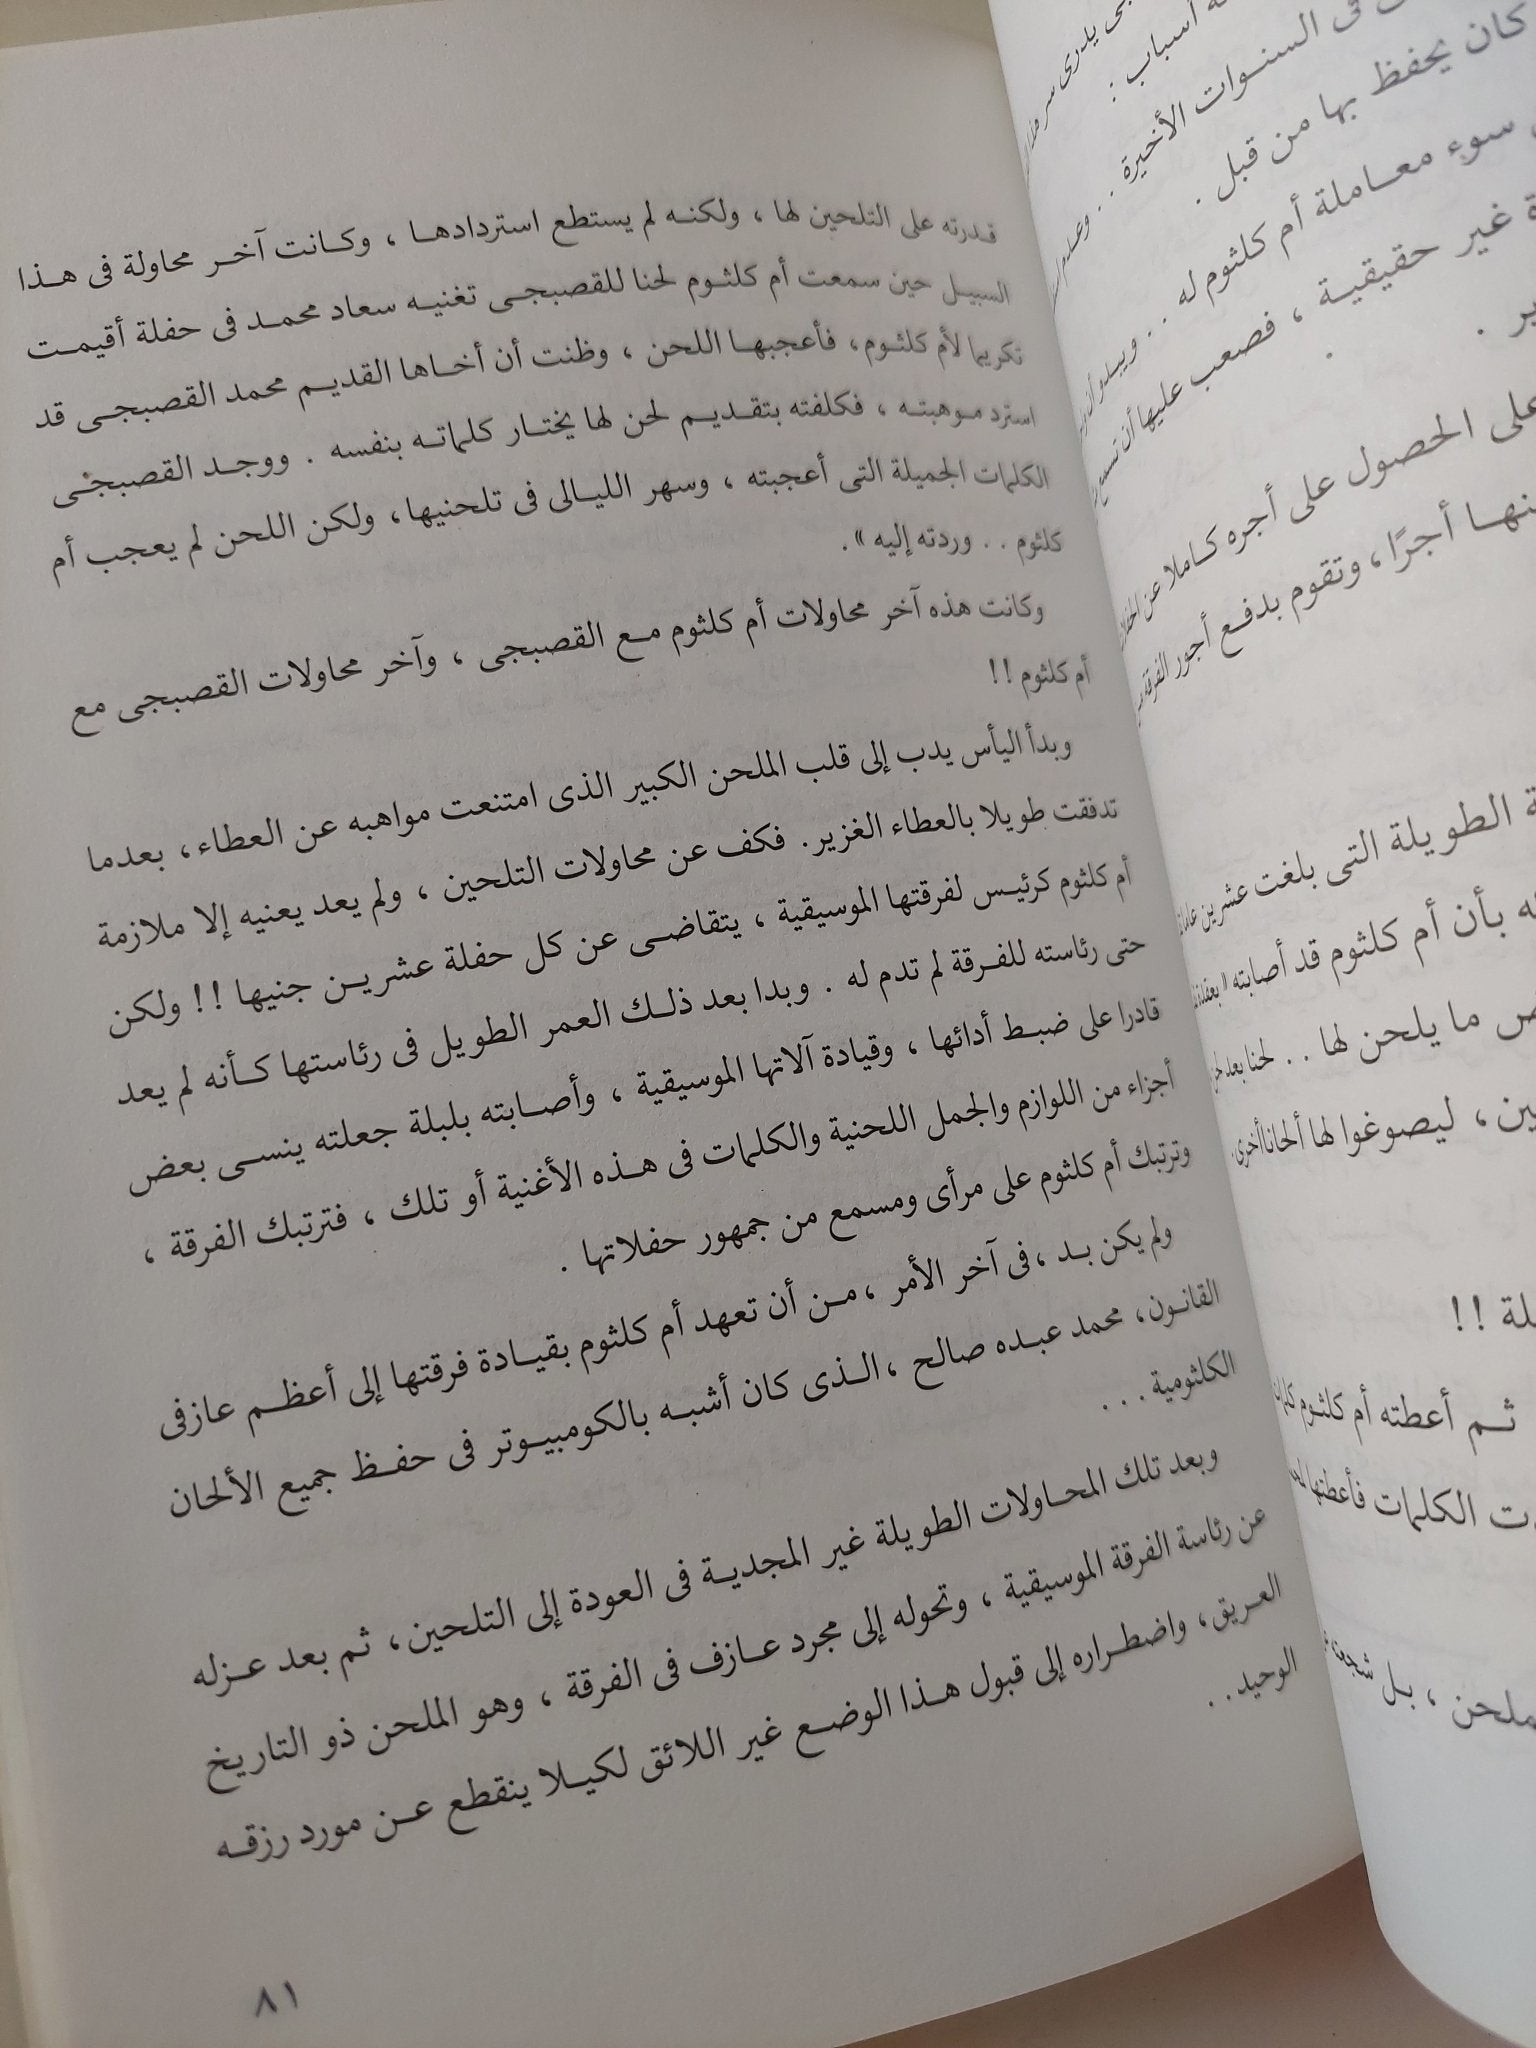 يدرى سر هذا
أسباب :
فى السنوات الأخيرة . . وعدم
كان يحفظ بها من قبل .
سوء معاملة أم كلثوم له . . ويبدو أن
غير حقيقية ، فصعب عليها أن تسمع
على الحصول على أجره كاملا عن
أجرًا ، وتقوم بدفع أجور الفرقة
الطويلة التى بلغت عشرين عاما
بأن أم كلثوم قد أصابته « بعقدة
ما يلحن لها . . لحنا بعد
ليصوغوا لها ألحانا أخرى
! !
ثم أعطته أم كلثوم كلمات
الكلمات فأعطتها
بل شجعت
قدرته على التلحين لها ، ولكنه لم يستطع استردادها ، وكانت آخر محاولة فى هذا
السبيل حين سمعت أم كلثوم لحنا للقصبجى تغنيه سعاد محمد فى حفلة أقيمت
تكريما لأم كلثوم، فأعجبها اللحن ، وظنت أن أخاها القديم محمد القصبجى قد
استرد موهبته ، فكلفته بتقديم لحن لها يختار كلماته بنفسه . ووجد القصبجى
الكلمات الجميلة التى أعجبته ، وسهر الليالى فى تلحنيها، ولكن اللحن لم يعجب أم
كلثوم . . وردته إليه » .
وكانت هذه آخر محاولات أم كلثوم مع القصبجى ، وآخر محاولات القصبجى مع
أم كلثوم ! !
وبدأ اليأس يدب إلى قلب الملحن الكبير الذى امتنعت مواهبه عن العطاء، بعدما
تدفقت طويلا بالعطاء الغزير. فكف عن محاولات التلحين ، ولم يعد يعنيه إلا ملازمة
أم كلثوم كرئيس لفرقتها الموسيقية ، يتقاضى عن كل حفلة عشرين جنيها ! ! ولكن
حتى رئاسته للفرقة لم تدم له . وبدا بعد ذلك العمر الطويل فى رئاستها كأنه لم يعد
قادرا على ضبط أدائها ، وقيادة آلاتها الموسيقية ، وأصابته بلبلة جعلته ينسى بعض
أجزاء من اللوازم والجمل اللحنية والكلمات فى هذه الأغنية أو تلك ، فترتبك الفرقة ،
وترتبك أم كلثوم على مرأى ومسمع من جمهور حفلاتها .
ولم يكن بد ، فى آخر الأمر ، من أن تعهد أم كلثوم بقيادة فرقتها إلى أعظم عازفى
القانون، محمد عبده صالح ، الذى كان أشبه بالكومبيوتر فى حفظ جميع الألحان
الكلثومية . . .
وبعد تلك المحاولات الطويلة غير المجدية فى العودة إلى التلحين، ثم بعد عزله
عن رئاسة الفرقة الموسيقية ، وتحوله إلى مجرد عازف فى الفرقة ، وهو الملحن ذو التاريخ
العريق، واضطراره إلى قبول هذا الوضع غير اللائق لكيلا ينقطع عن مورد رزقه
الوحيد . .
٨١